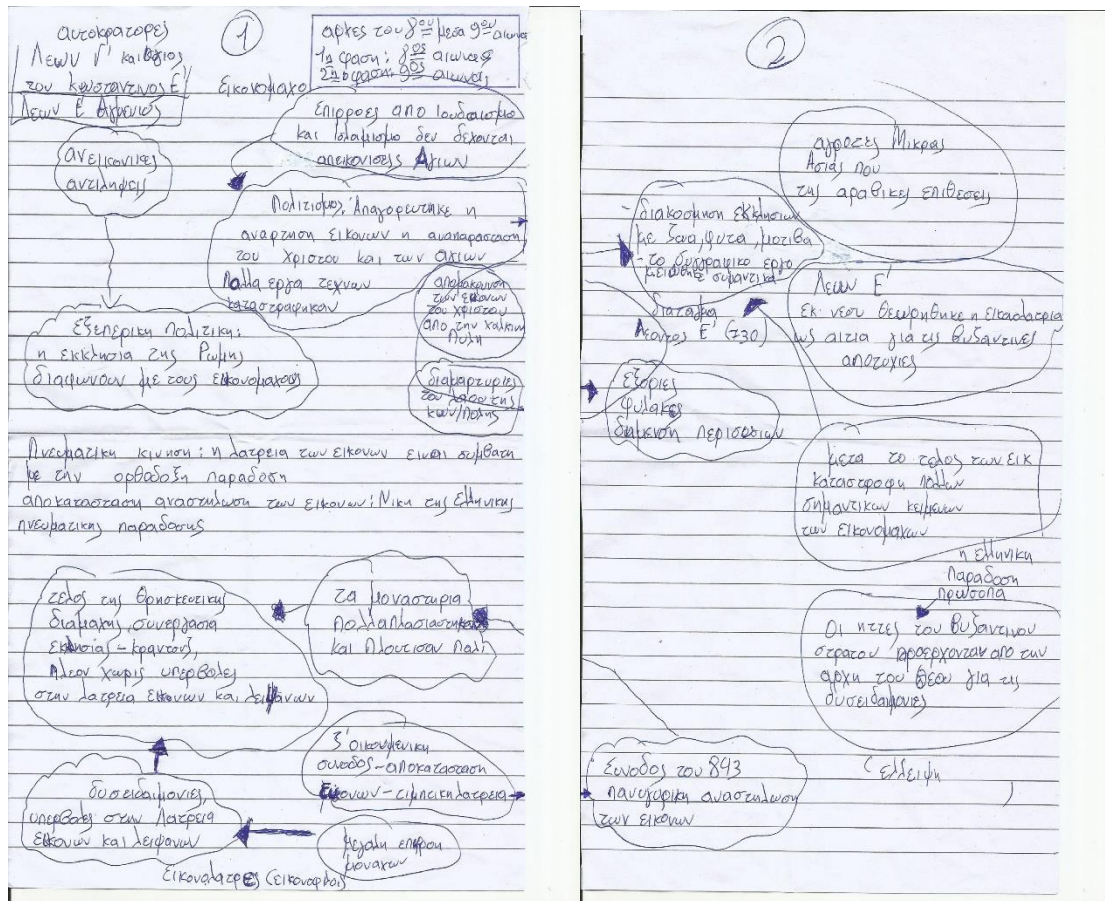 αυτοκρατορες
1
Λεων Γ' και
του Κωσταντινος Ε'
Λεων Ε'
αρχες του 8ου μεσα 9ου αιωνα
1η φαση: 8ος αιωνας
2η φαση: 9ος αιωνας
Εικονομαχο
Επιρροες απο Ιουδαισμο
και Ισλαμισμο δεν δεχονται
απεικονισεις Αγιων
ανεικονικες
αντιληψεις
Πολιτισμος: Απαγορευτηκε η
αναρτηση εικονων η αναπαρασταση
του Χριστου και των αγιων
Πολλα εργα τεχνων
καταστραφηκαν
απομακρυνση
των εικονων
του χριστου
απο την χαλκινη
Πυλη
Εξεπερικη Πολιτικη:
η εκκλησια της Ρωμης
διαφωνουν με τους εικονομαχους
διαμαρτυριες
του λαου της
κων/πολης
Πνευματικη κινηση: η λατρεια των εικονων ειναι συμβατη
με την ορθοδοξη παραδοση
αποκατασταση αναστηλωση των εικονων: Νικη της Ελληνικης
πνευματικης παραδοσης
τελος της θρησκευτικης
διαμαχης, συνεργασια
εκκλησιας - κρατους,
πλεον χωρις υπερβολες
στην λατρεια εικονων και λειψανων
τα μοναστηρια
πολλαπλασιαστηκαν
και πλουτισαν παλι
Ζ' οικουμενικη
συνοδος - αποκατασταση
εικονων - τιμητικη λατρεια
δυσειδαιμονιες,
υπερβολες στην λατρεια
εικονων και λειψανων
μεγαλη επιρροη
μοναχων
Εικονολατρες (εικονοφιλοι)
2
αγροτες Μικρας
Ασιας που
της αραβικες επιθεσεις
- διακοσμηση εκκλησιων
με ζωα, φυτα, μοτιβα
- το συγγραφικο εργο
μειωθηκε σημαντικα
διαταγμα
Λεοντος Ε' (730)
Λεων Ε'
εκ νεου θεωρηθηκε η Εικολατρια
ως αιτια για τις βυζαντινες
αποτυχιες
εξοριες
φυλακες
διαμευση περιουσιων
μετα το τελος των εικ
καταστροφη πολλων
σημαντικων κειμενων
των εικονομαχων
η ελληνικη
παραδοση
πρωσοπα
Οι ηττες του βυζαντινου
στρατου προερχονταν απο την
αρχη του θεου για τις
δυσειδαιμονιες
Συνοδος του 843
πανηγυρικη αναστηλωση
των εικονων
(ελλειψη )